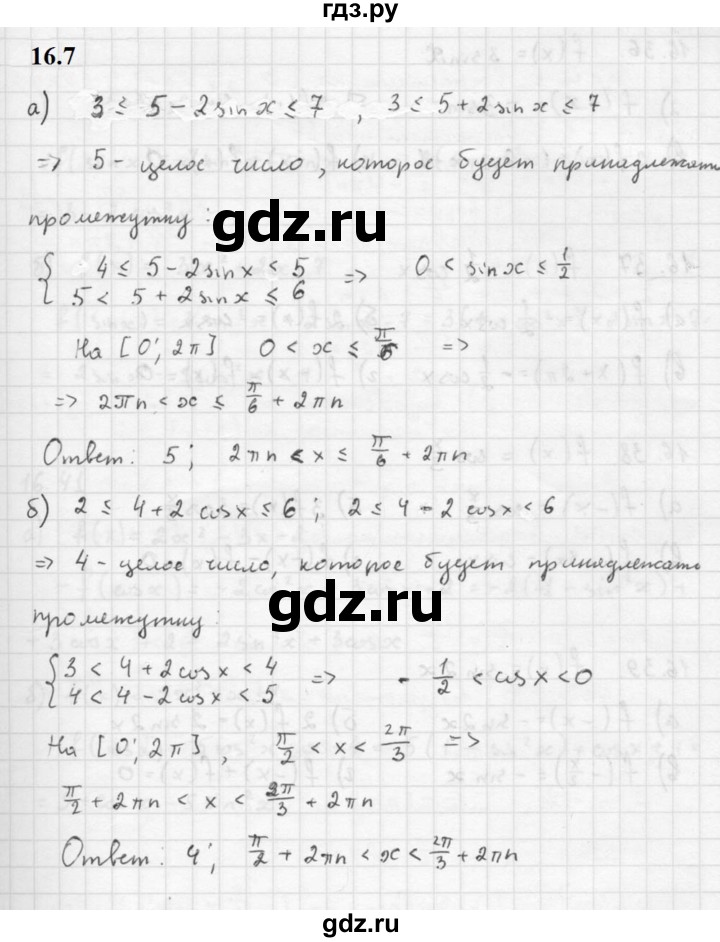 гдз.ру
16.7
а) 3 ≤ 5 - 2 sin x ≤ 7 , 3 ≤ 5 + 2 sin x ≤ 7
=> 5 - целое число, которое будет принадлежать
промежутку :
gdz.ru
{ 4 ≤ 5 - 2 sin x < 5 => 0 < sin x ≤ 1/2
5 < 5 + 2 sin x ≤ 6
На [0; 2π] 0 < x ≤ π/6 =>
=> 2πn < x ≤ π/6 + 2πn
Ответ: 5; 2πn < x ≤ π/6 + 2πn
б) 2 ≤ 4 + 2 cos x ≤ 6 ; 2 ≤ 4 - 2 cos x < 6
=> 4 - целое число, которое будет принадлежать
gdz.ru
промежутку :
{ 3 < 4 + 2 cos x < 4 => - 1/2 < cos x < 0
4 < 4 - 2 cos x < 5
На [0; 2π], π/2 < x < 2π/3 =>
π/2 + 2πn < x < 2π/3 + 2πn
Ответ: 4; π/2 + 2πn < x < 2π/3 + 2πn
gdz.ru